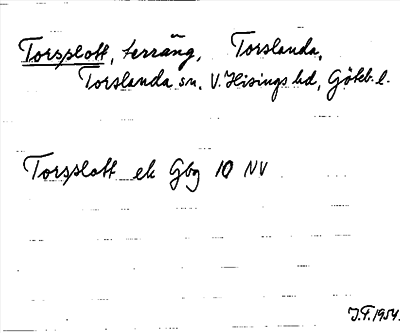 Torsslott, terräng, Torslanda,
Torslanda sn. V. Hisings hd, Göteb. l.
Torsslott ek Gbg 10 NV
J.F. 1954.